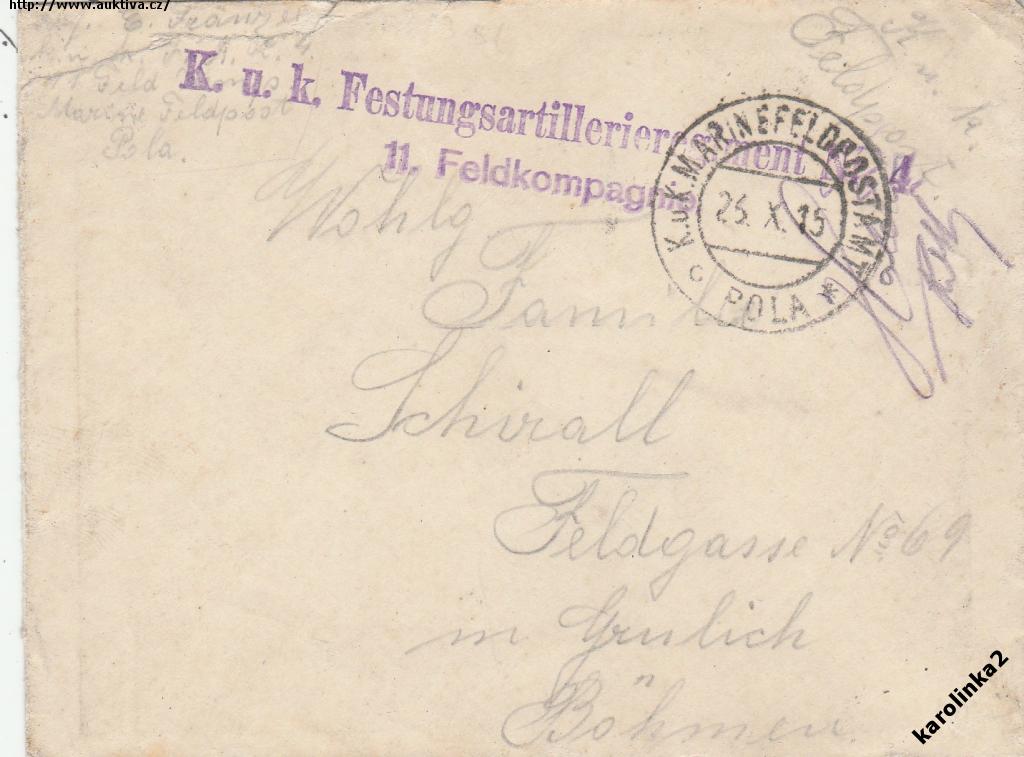 http://www.auktiva.cz/
E. Franze
Feld
Marine Feldpost
Pola.
K. u. k.
Feldpost.
K. u. k. Festungsartillerieregiment Nr. 4.
11. Feldkompagnie
K.u.K. MARINEFELDPOSTAMT
25. X. 15
c POLA *
Wohlg
Familie
Schirall
Feldgasse No 69
in Grulich
Böhmen.
karolinka2